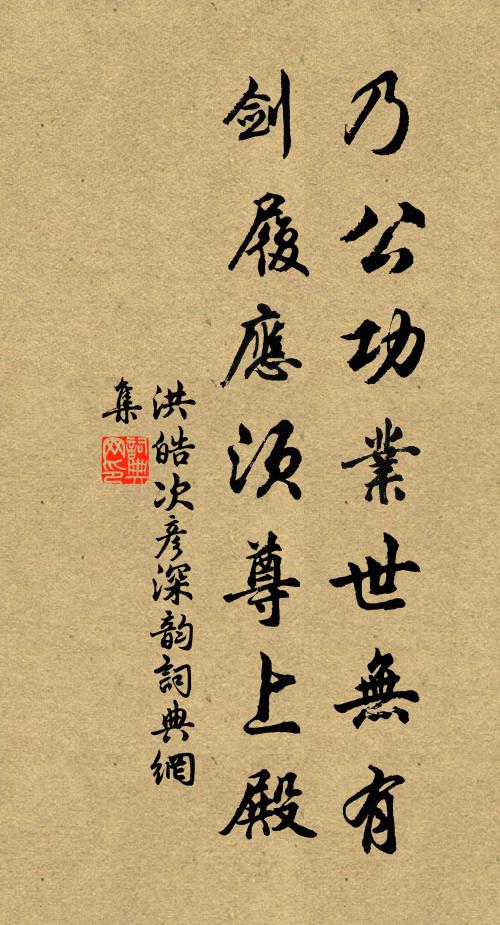 乃公功業世無有
劍履應須尊上殿
洪皓次彥深韵詞典網
集
詞典
网印